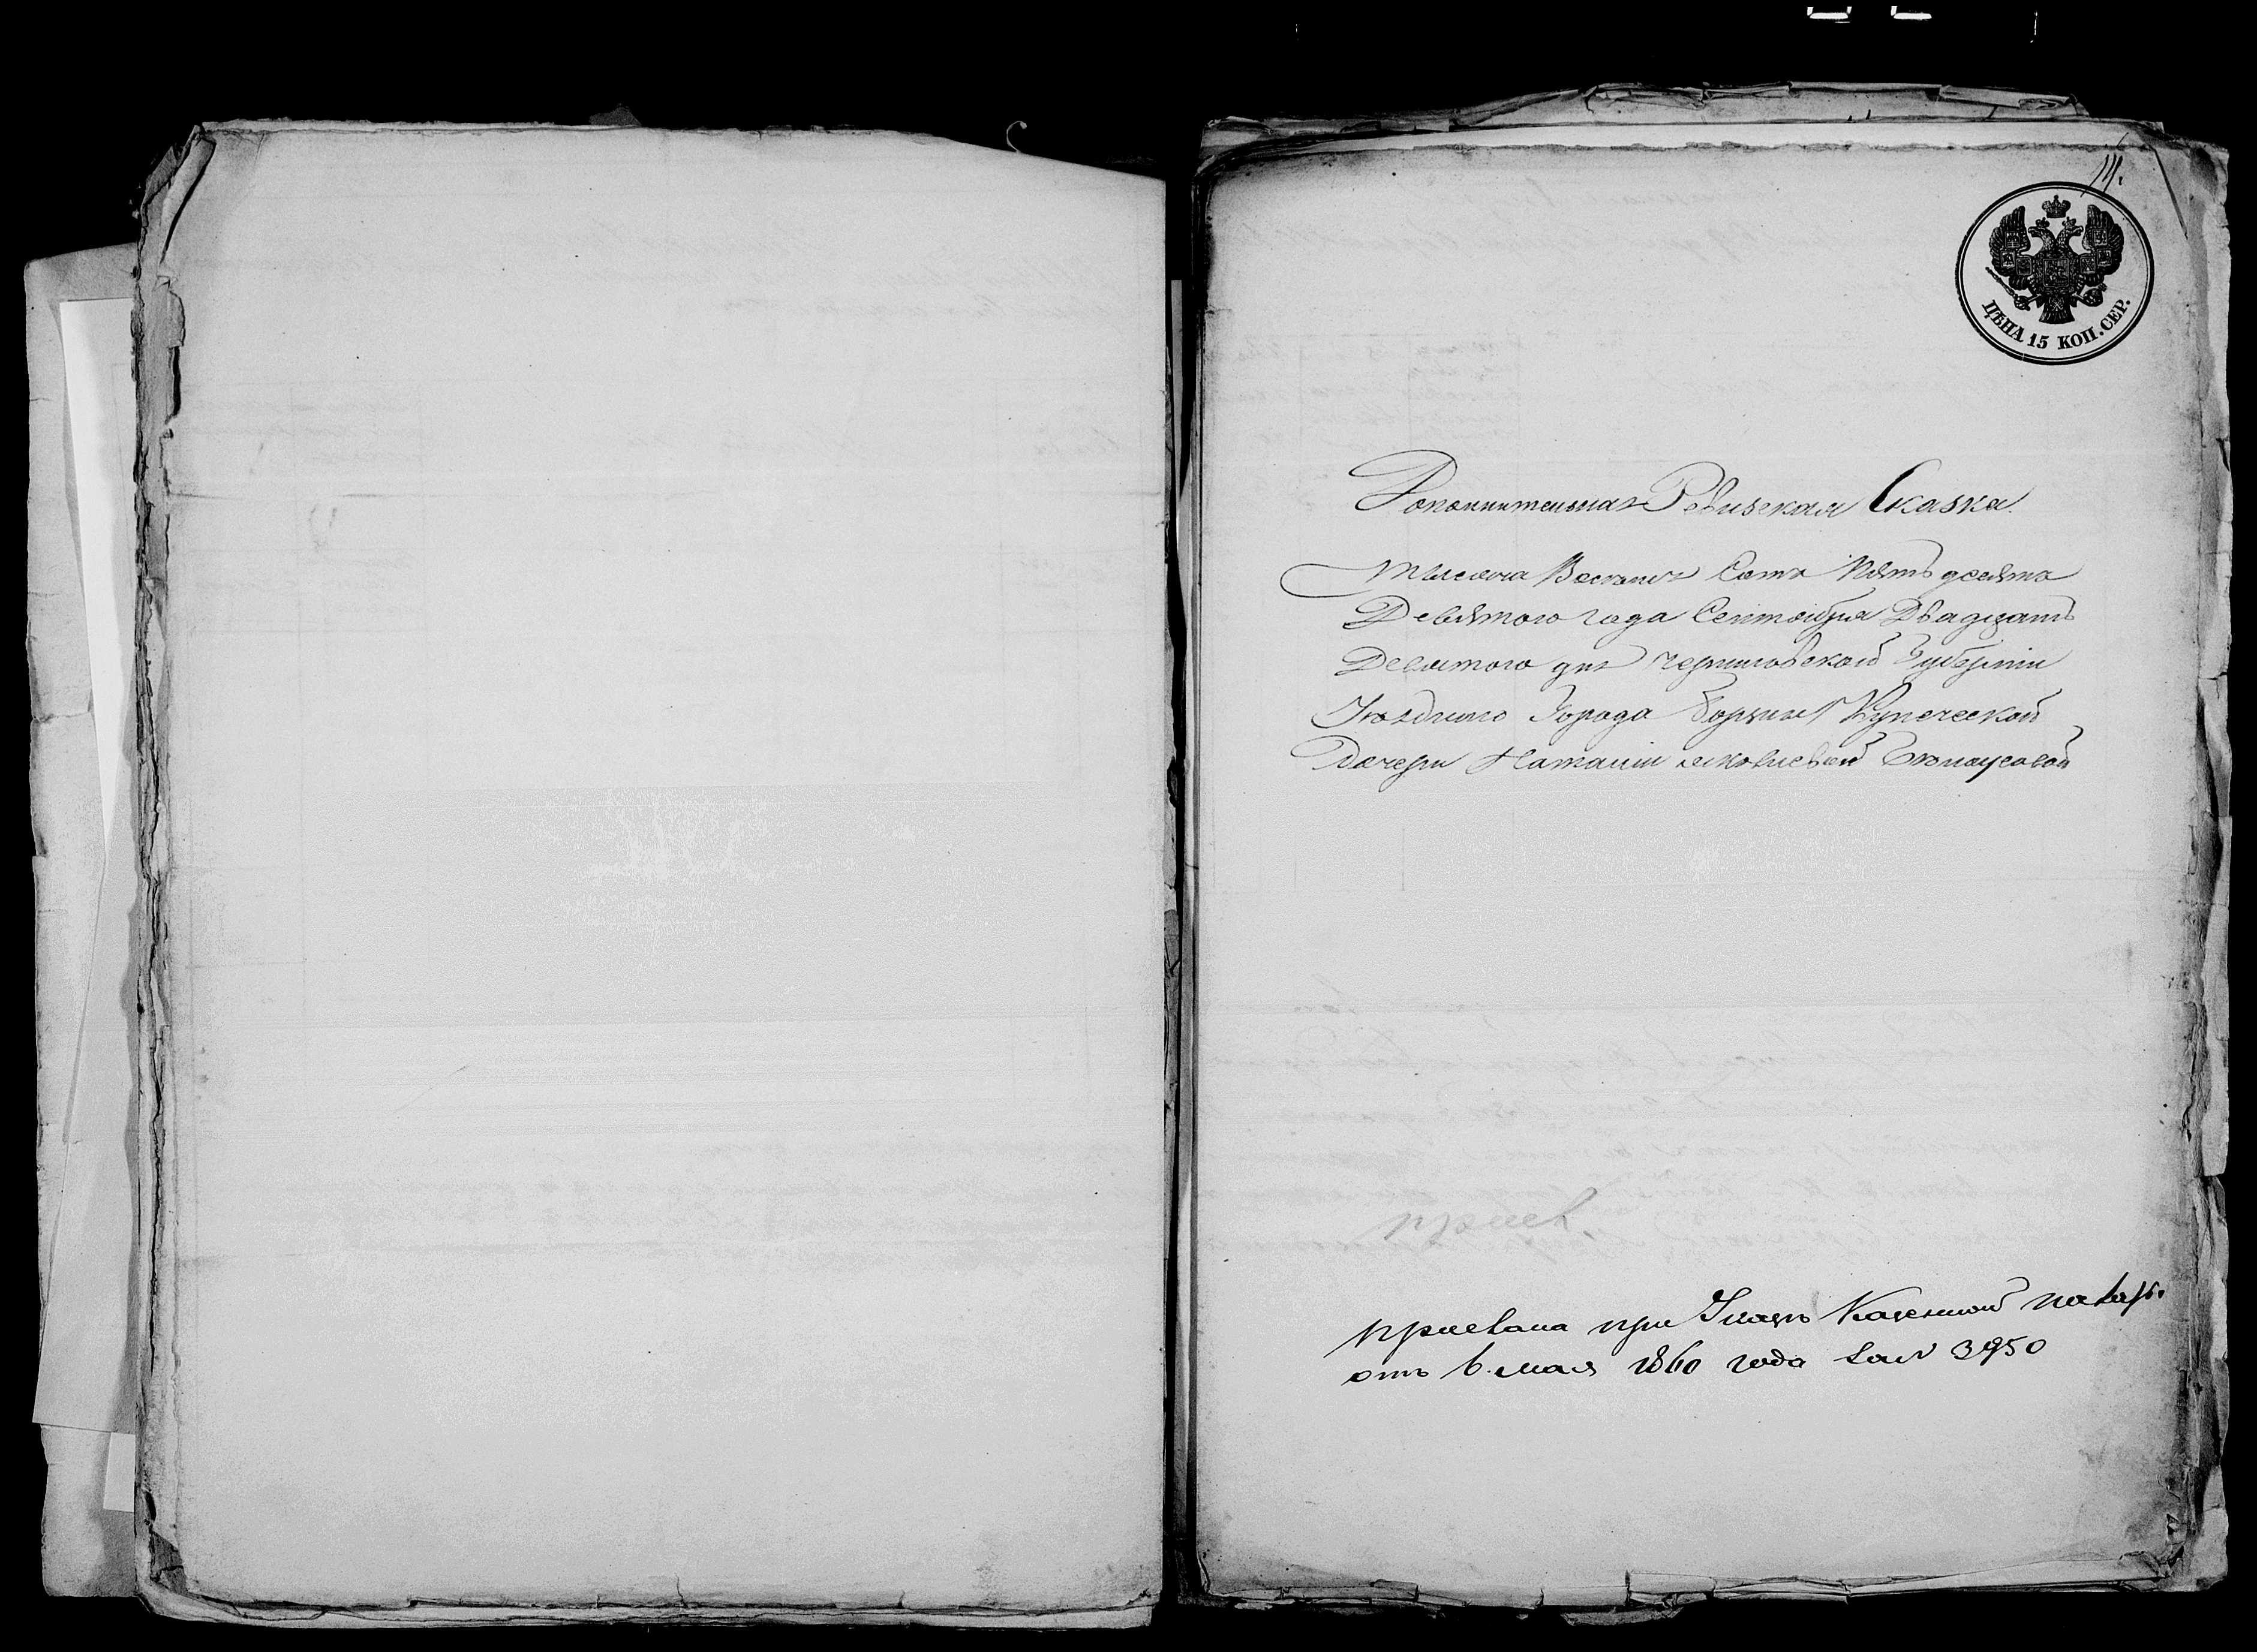 111.
ЦѢНА 15 КОП. СЕР.
Дополнительная Ревизская Сказка.
Тысяча Восемь Сотъ Пятьдесятъ
Девятого года Сентября Двадцать
Девятого дня Черниговской Губерніи
Уѣздного Города Борзны Купеческой
Дочери Наталіи Яковлевой
прислана при Указѣ Казенной палаты
отъ 6. мая 1860 года за № 3950